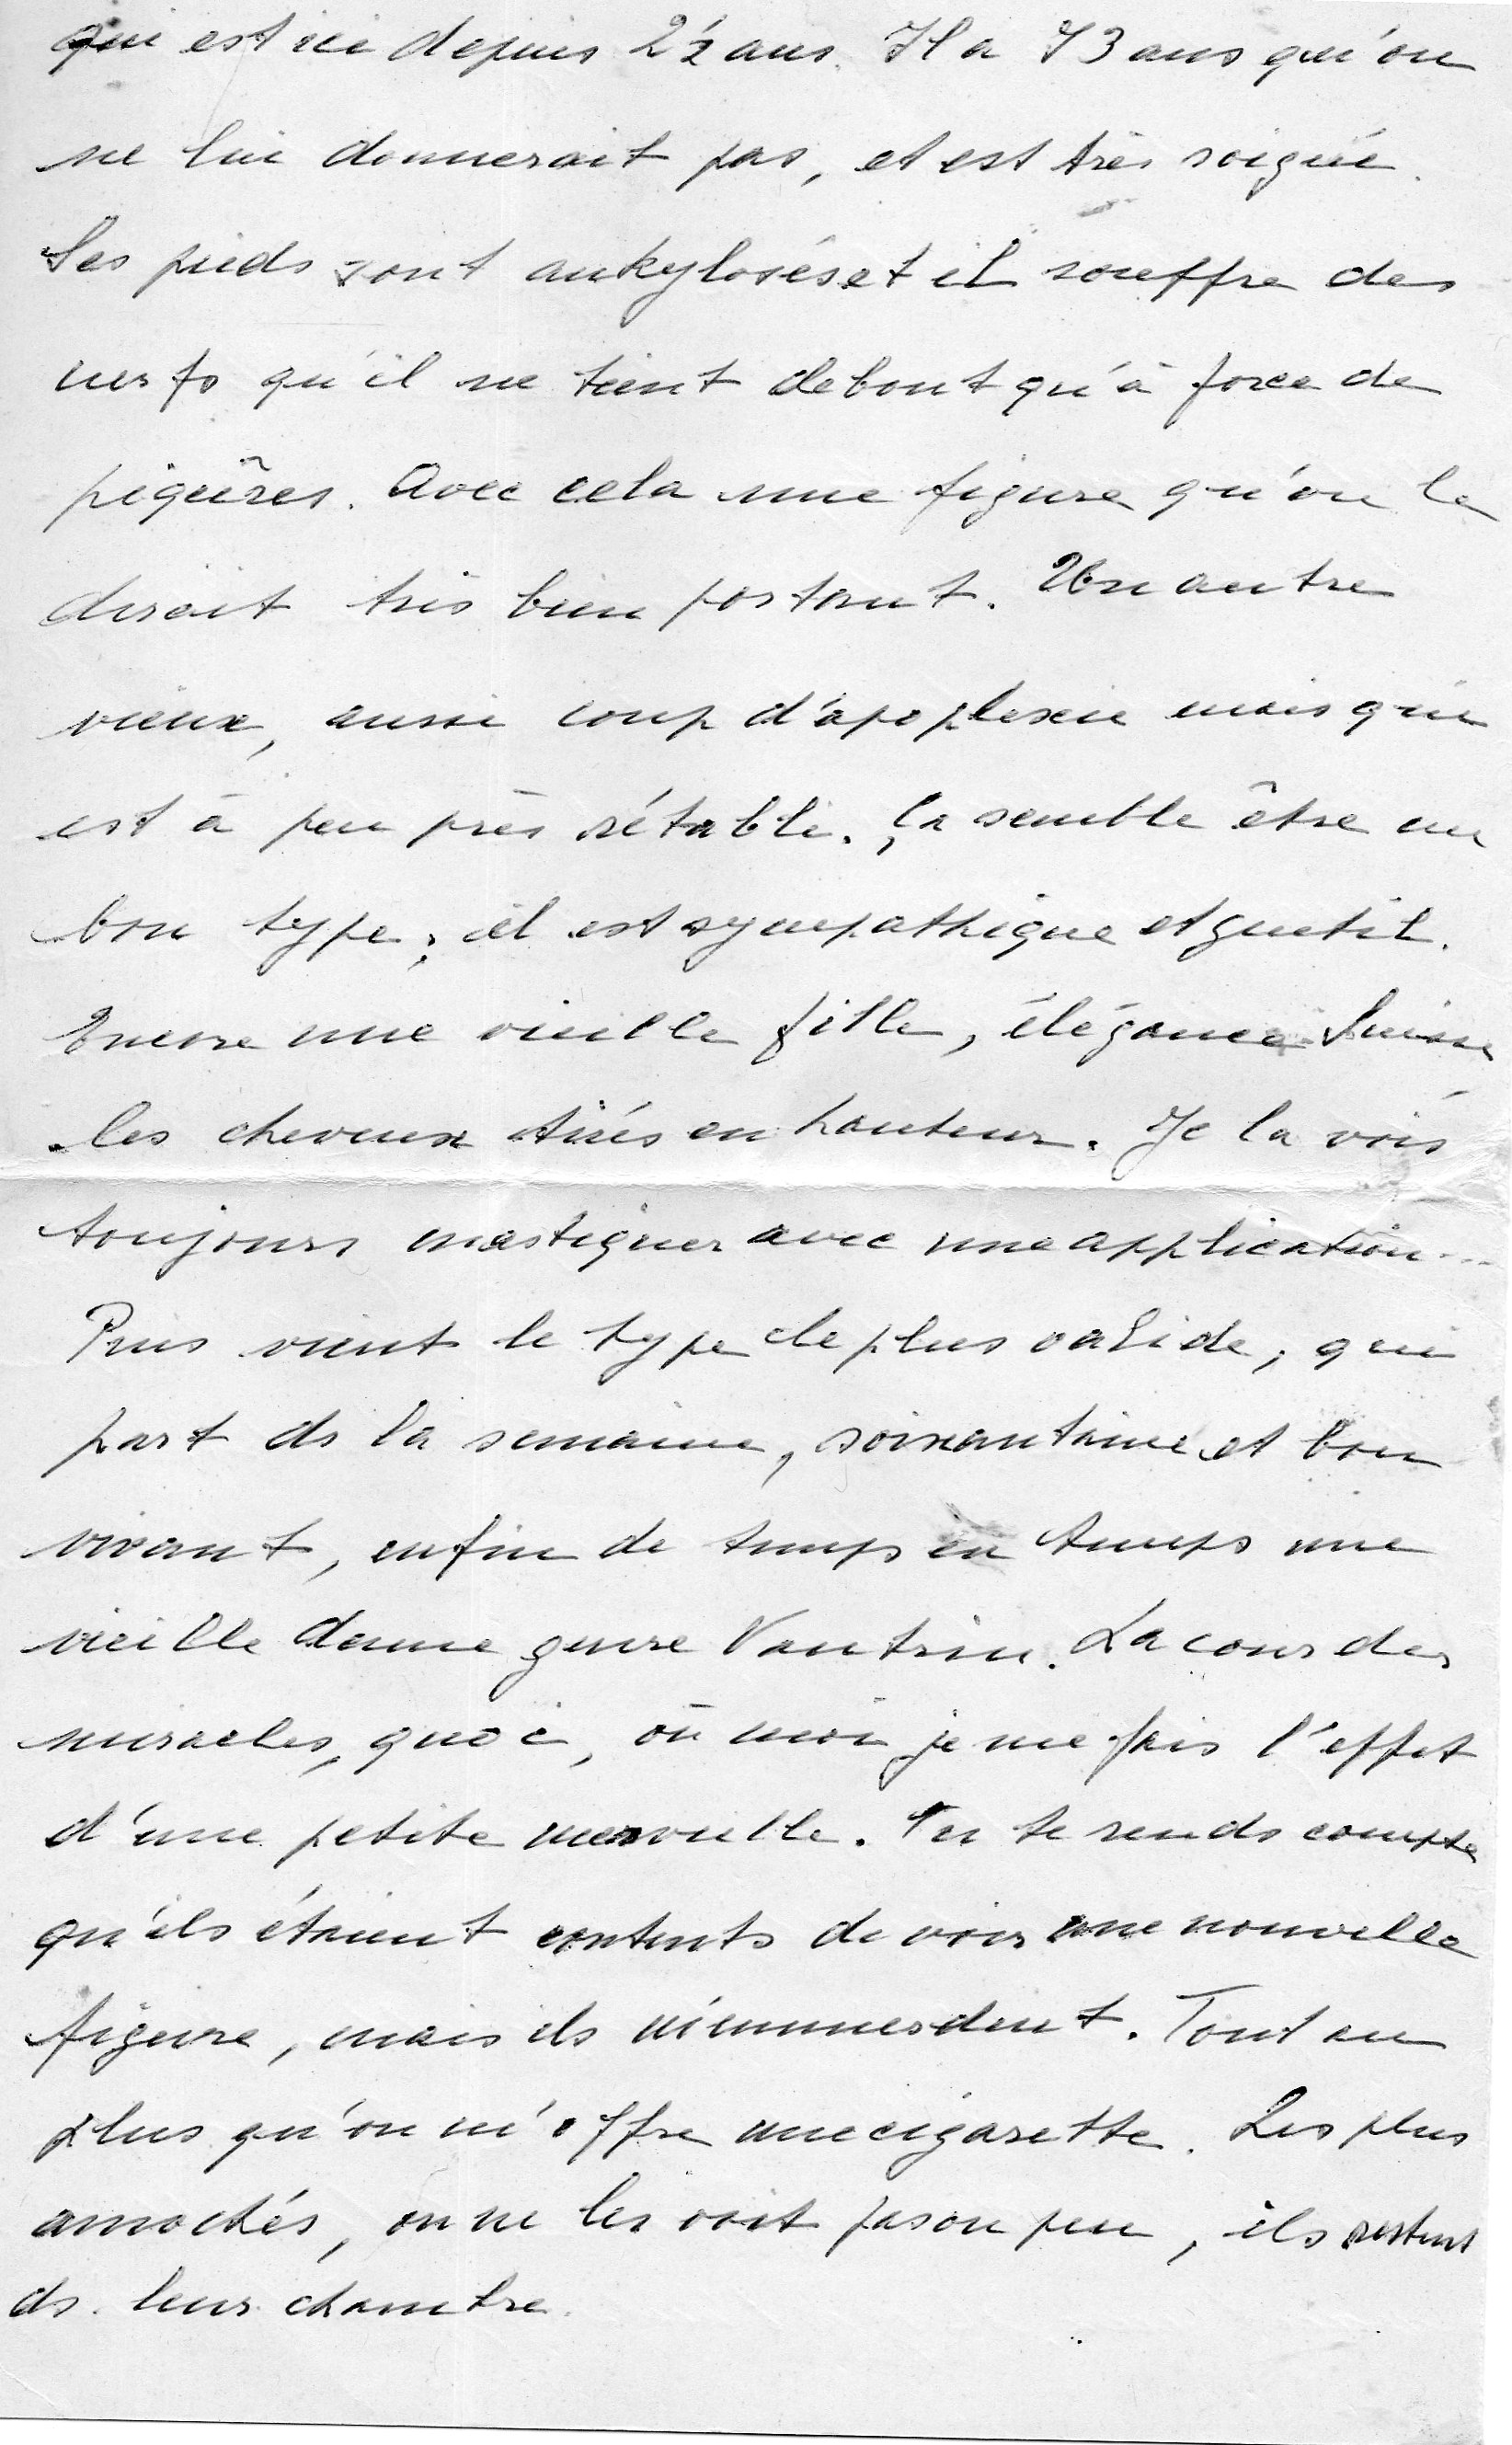 qui est ici depuis 2½ ans. Il a 73 ans qu'on
ne lui donnerait pas, et est très soigné.
Ses pieds sont ankylosés et il souffre des
nerfs qu'il ne tient debout qu'à force de
piqûres. Avec cela une figure qu'on le
dirait très bien portant. Un autre
vieux, aussi coup d'apoplexie mais qui
est à peu près rétabli. Ça semble être un
bon type, il est sympathique et gentil.
Encore une vieille fille, élégance Suisse
les cheveux tirés en hauteur. Je la vois
toujours mastiquer avec une application...
Puis vient le type le plus valide, qui
part ds la semaine, soixantaine et bon
vivant, enfin de temps en temps une
vieille dame genre Vautrin. La cour des
miracles, quoi, où moi je me fais l'effet
d'une petite merveille. Tu te rends compte
qu'ils étaient contents de voir une nouvelle
figure, mais ils m'emmerdent. Tout au
plus qu'on m'offre une cigarette. Les plus
amochés, on ne les voit pas ou peu, ils restent
ds. leur chambre.